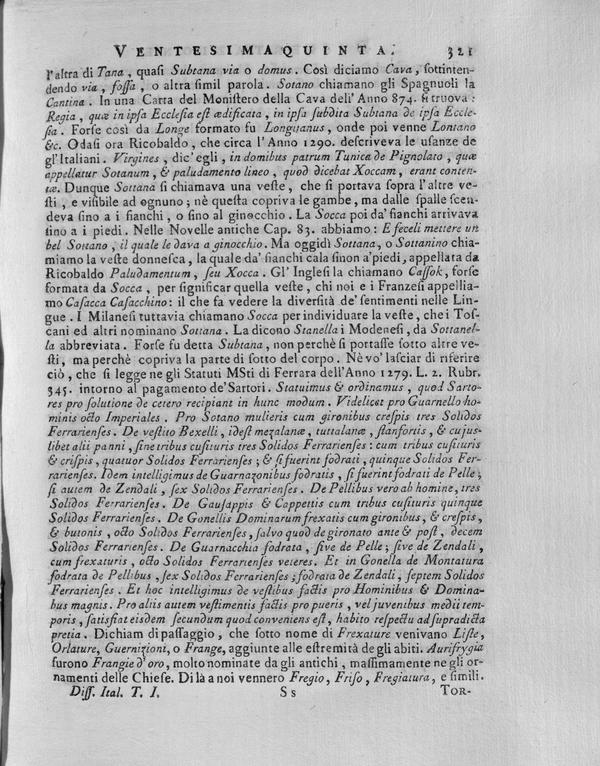 VENTESIMAQUINTA. 321
l'altra di Tana, quasi Subtana via o domus. Così diciamo Cava, sottinten-
dendo via, fossa, o altra simil parola. Sotano chiamano gli Spagnuoli la
Cantina. In una Carta del Monistero della Cava dell'Anno 874. si truova:
Regia, quæ in ipsa Ecclesia est ædificata, in ipsa subdita Subtana de ipsa Eccle-
sia. Forse così da Longe formato fu Longitanus, onde poi venne Lontano
&c. Odasi ora Ricobaldo, che circa l'Anno 1290. descriveva le usanze de
gl'Italiani. Virgines, dic'egli, in domibus patrum Tunica de Pignolato, quæ
appellatur Sotanum, & paludamento lineo, quod dicebat Xoccam, erant conten-
tæ. Dunque Sottana si chiamava una veste, che si portava sopra l'altre ve-
sti, e visibile ad ognuno; nè questa copriva le gambe, ma dalle spalle scen-
deva sino a i fianchi, o sino al ginocchio. La Socca poi da' fianchi arrivava
sino a i piedi. Nelle Novelle antiche Cap. 83. abbiamo: E feceli mettere un
bel Sottano, il quale le dava a ginocchio. Ma oggidì Sottana, o Sottanino chia-
miamo la veste donnesca, la quale da' fianchi cala sinon a' piedi, appellata da
Ricobaldo Paludamentum, seu Xocca. Gl' Inglesi la chiamano Cassok, forse
formata da Socca, per significar quella veste, chi noi e i Franzesi appellia-
mo Casacca Casacchino: il che fa vedere la diversità de' sentimenti nelle Lin-
gue. I Milanesi tuttavia chiamano Socca per individuare la veste, che i Tos-
cani ed altri nominano Sottana. La dicono Stanella i Modenesi, da Sottanel-
la abbreviata. Forse fu detta Subtana, non perchè si portasse sotto altre ve-
sti, ma perchè copriva la parte di sotto del corpo. Nè vo' lasciar di riferire
ciò, che si legge ne gli Statuti MSti di Ferrara dell'Anno 1279. L. 2. Rubr.
345. intorno al pagamento de' Sartori. Statuimus & ordinamus, quod Sarto-
res pro solutione de cetero recipiant in hunc modum. Videlicet pro Guarnello ho-
minis octo Imperiales. Pro Sotano mulieris cum gironibus crespis tres Solidos
Ferrarienses. De vestito Bexelli, idest mezalanæ, tuttalanæ, stanfortis, & cujus-
libet alii panni, sine tribus cusituris tres Solidos Ferrarienses: cum tribus cusituris
& crispis, quatuor Solidos Ferrarienses; & si fuerint fodrati, quinque Solidos Fer-
rarienses. Idem intelligimus de Guarnazonibus fodratis, si fuerint fodrati de Pelle;
si autem de Zendali, sex Solidos Ferrarienses. De Pellibus vero ab homine, tres
Solidos Ferrarienses. De Gausappis & Cappettis cum tribus cusituris quinque
Solidos Ferrarienses. De Gonellis Dominarum frexatis cum gironibus, & crespis,
& butonis, octo Solidos Ferrarienses, salvo quod de gironato ante & post, decem
Solidos Ferrarienses. De Guarnacchia fodrata, sive de Pelle; sive de Zendali,
cum frexaturis, octo Solidos Ferrarienses veteres. Et in Gonella de Montatura
fodrata de Pellibus, sex Solidos Ferrarienses; fodrata de Zendali, septem Solidos
Ferrarienses. Et hoc intelligimus de vestibus factis pro Hominibus & Domina-
bus magnis. Pro aliis autem vestimentis factis pro pueris, vel juventibus medii tem-
poris, satisfiat eisdem secundum quod conveniens est, habito respectu ad supradicta
pretia. Dichiam di passaggio, che sotto nome di Frexature venivano Liste,
Orlature, Guernizioni, o Frange, aggiunte alle estremità de gli abiti. Aurifrygia
furono Frangie d'oro, molto nominate da gli antichi, massimamente ne gli or-
namenti delle Chiese. Di là a noi vennero Fregio, Friso, Fregiatura, e simili.
Diss. Ital. T. I. Ss TOR-